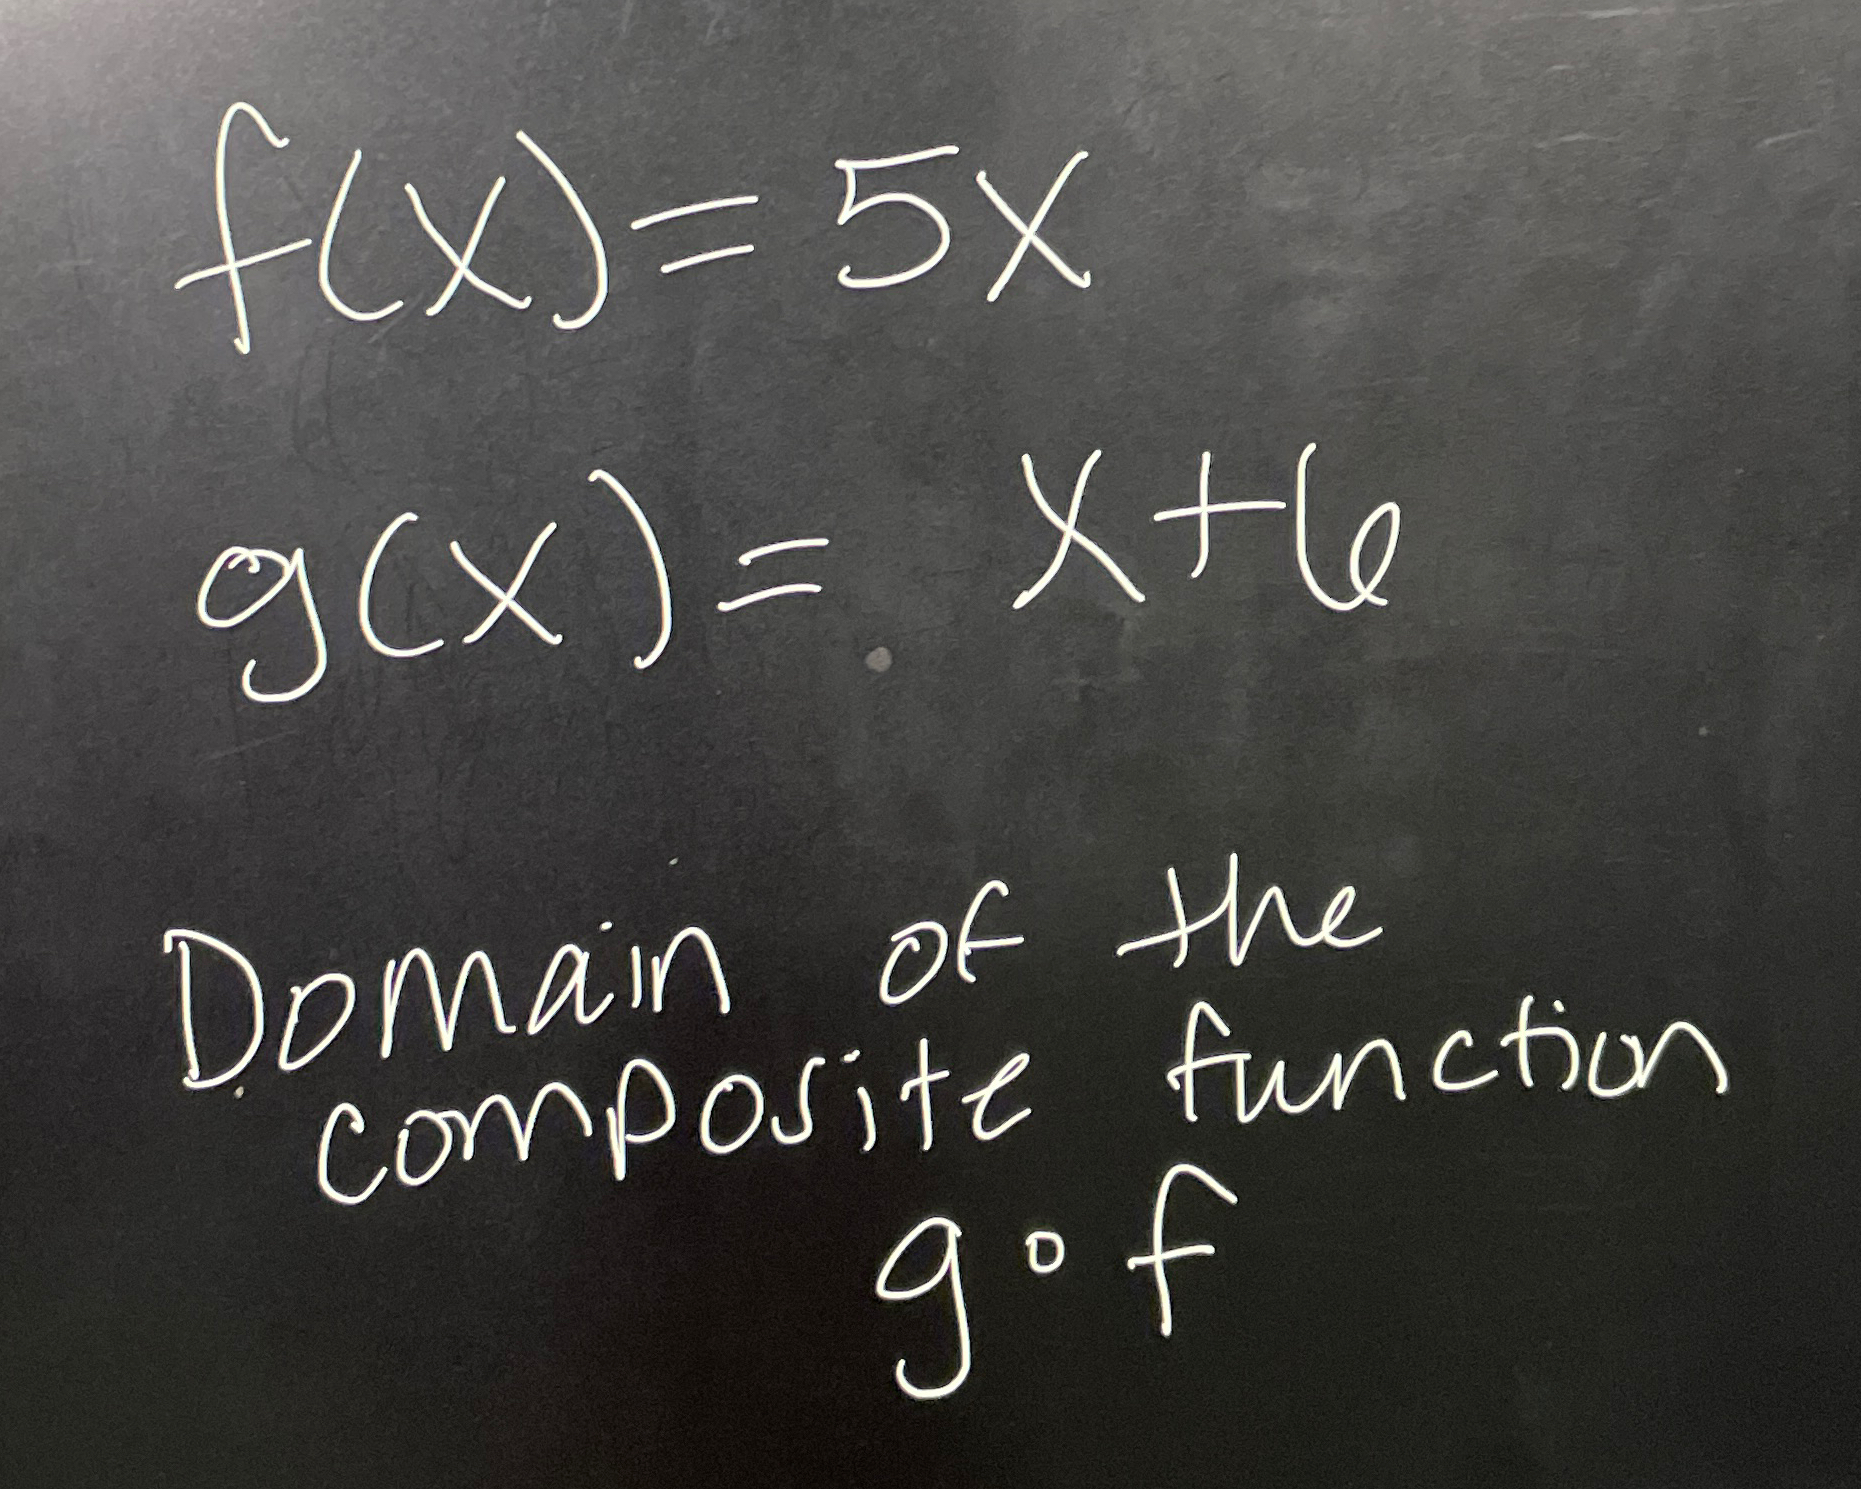 f(x) = 5x
g(x) = x+6
Domain of the
composite function
g∘f